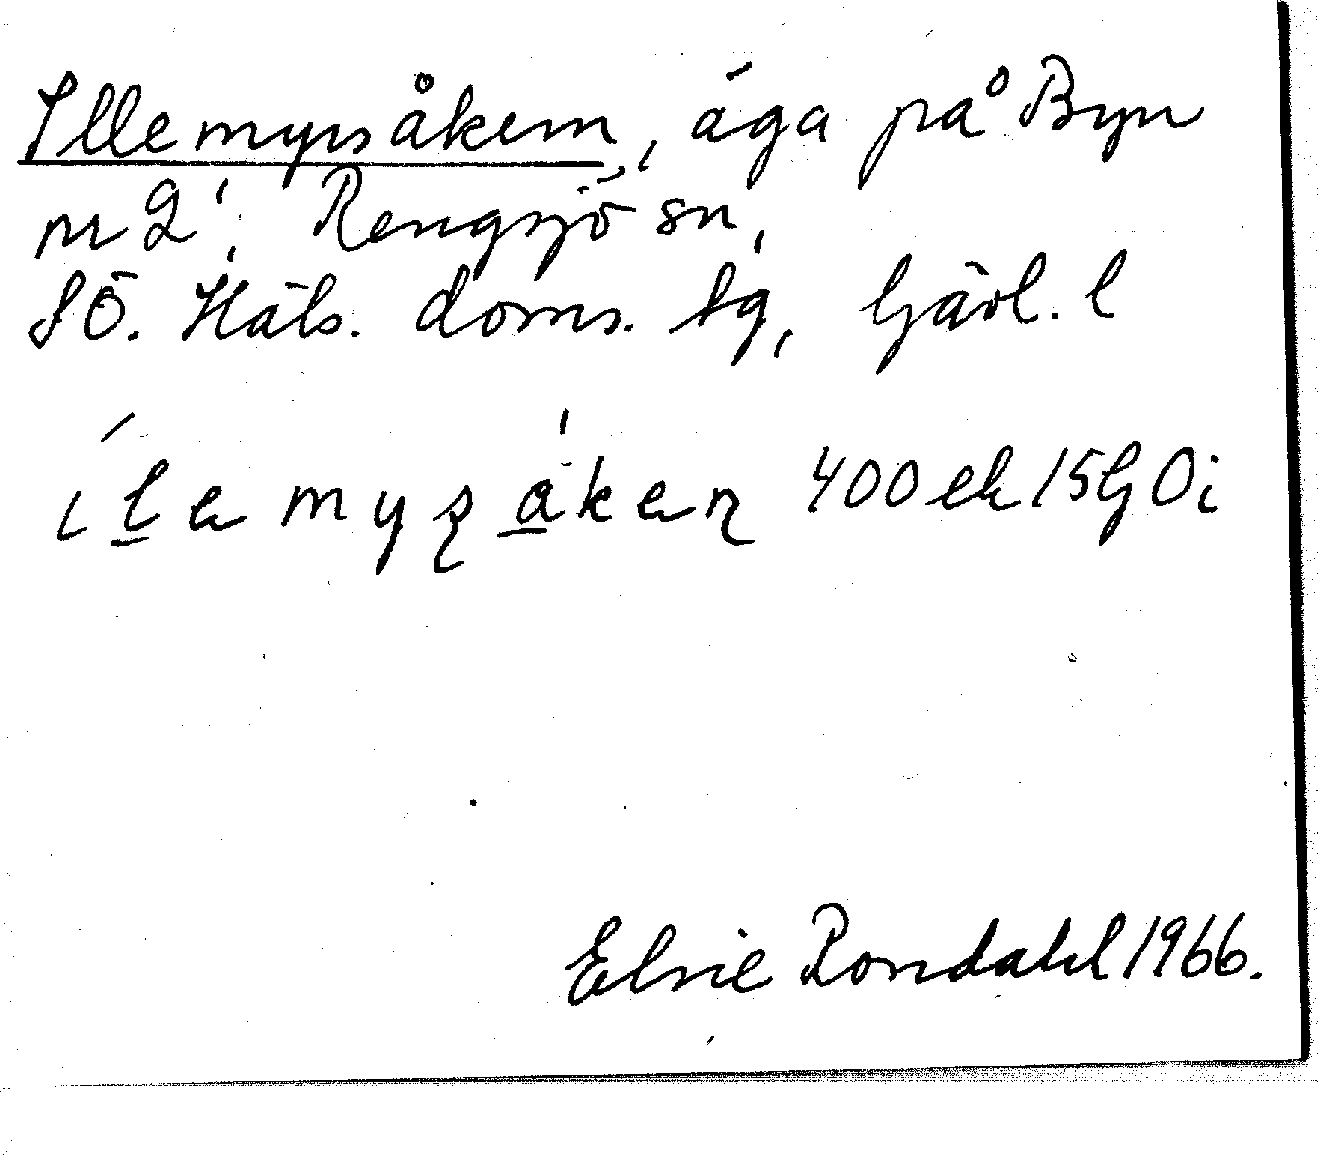 Illemyrsåkern, äga på Byn
nr 2, Rengsjö sn,
SÖ. Häls. doms. tg, Gävl. l
ílemyʂåkeɳ 400 ek 15G0i
Elsie Rondahl 1966.